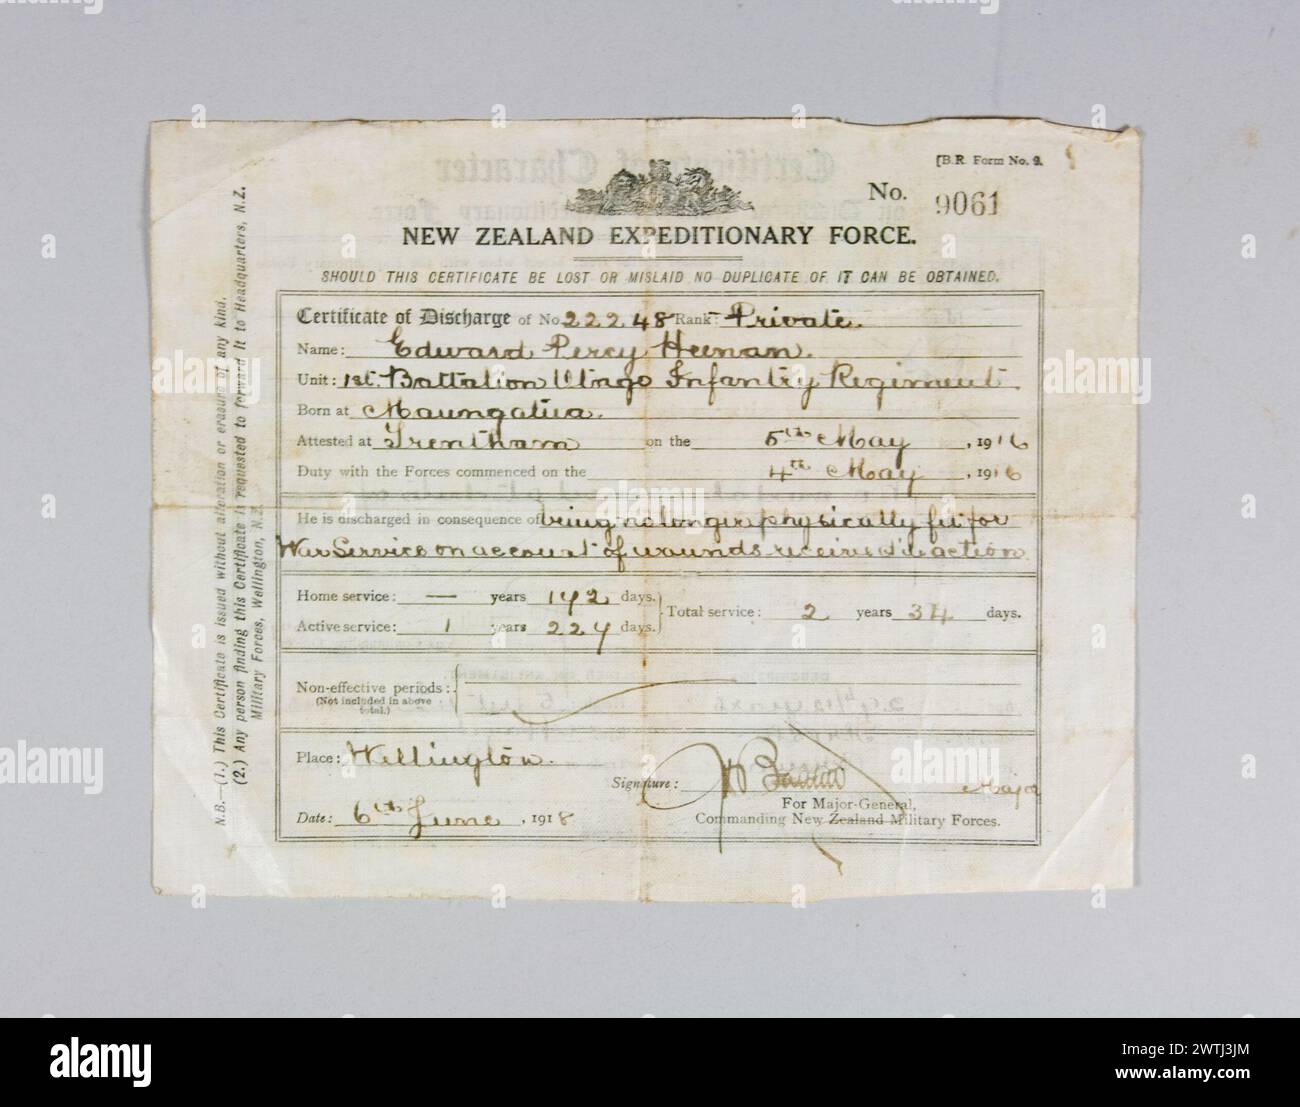 [B.R. Form No. 9.
No. 9061
NEW ZEALAND EXPEDITIONARY FORCE.
SHOULD THIS CERTIFICATE BE LOST OR MISLAID NO DUPLICATE OF IT CAN BE OBTAINED.
Certificate of Discharge of No. 22248 Rank: Private.
Name: Edward Percy Heenan.
Unit: 1st Battalion Otago Infantry Regiment
Born at Maungatua.
Attested at Trentham on the 5th May, 1916
Duty with the Forces commenced on the 4th May, 1916
He is discharged in consequence of being no longer physically fit for
War Service on account of wounds received in action
Home service: — years 192 days.
Active service: 1 years 227 days.
Total service: 2 years 34 days.
Non-effective periods:
(Not included in above
total.)
Place: Wellington.
Signature: Major
For Major-General,
Commanding New Zealand Military Forces.
Date: 6th June, 1918
N.B.—(1.) This Certificate is issued without alteration or erasure of any kind.
(2.) Any person finding this Certificate is requested to forward it to Headquarters, N.Z.
Military Forces, Wellington, N.Z.
Certificate of Character
on Discharge
Expeditionary Force
alamy
Image ID: 2WTJ3JM
www.alamy.com